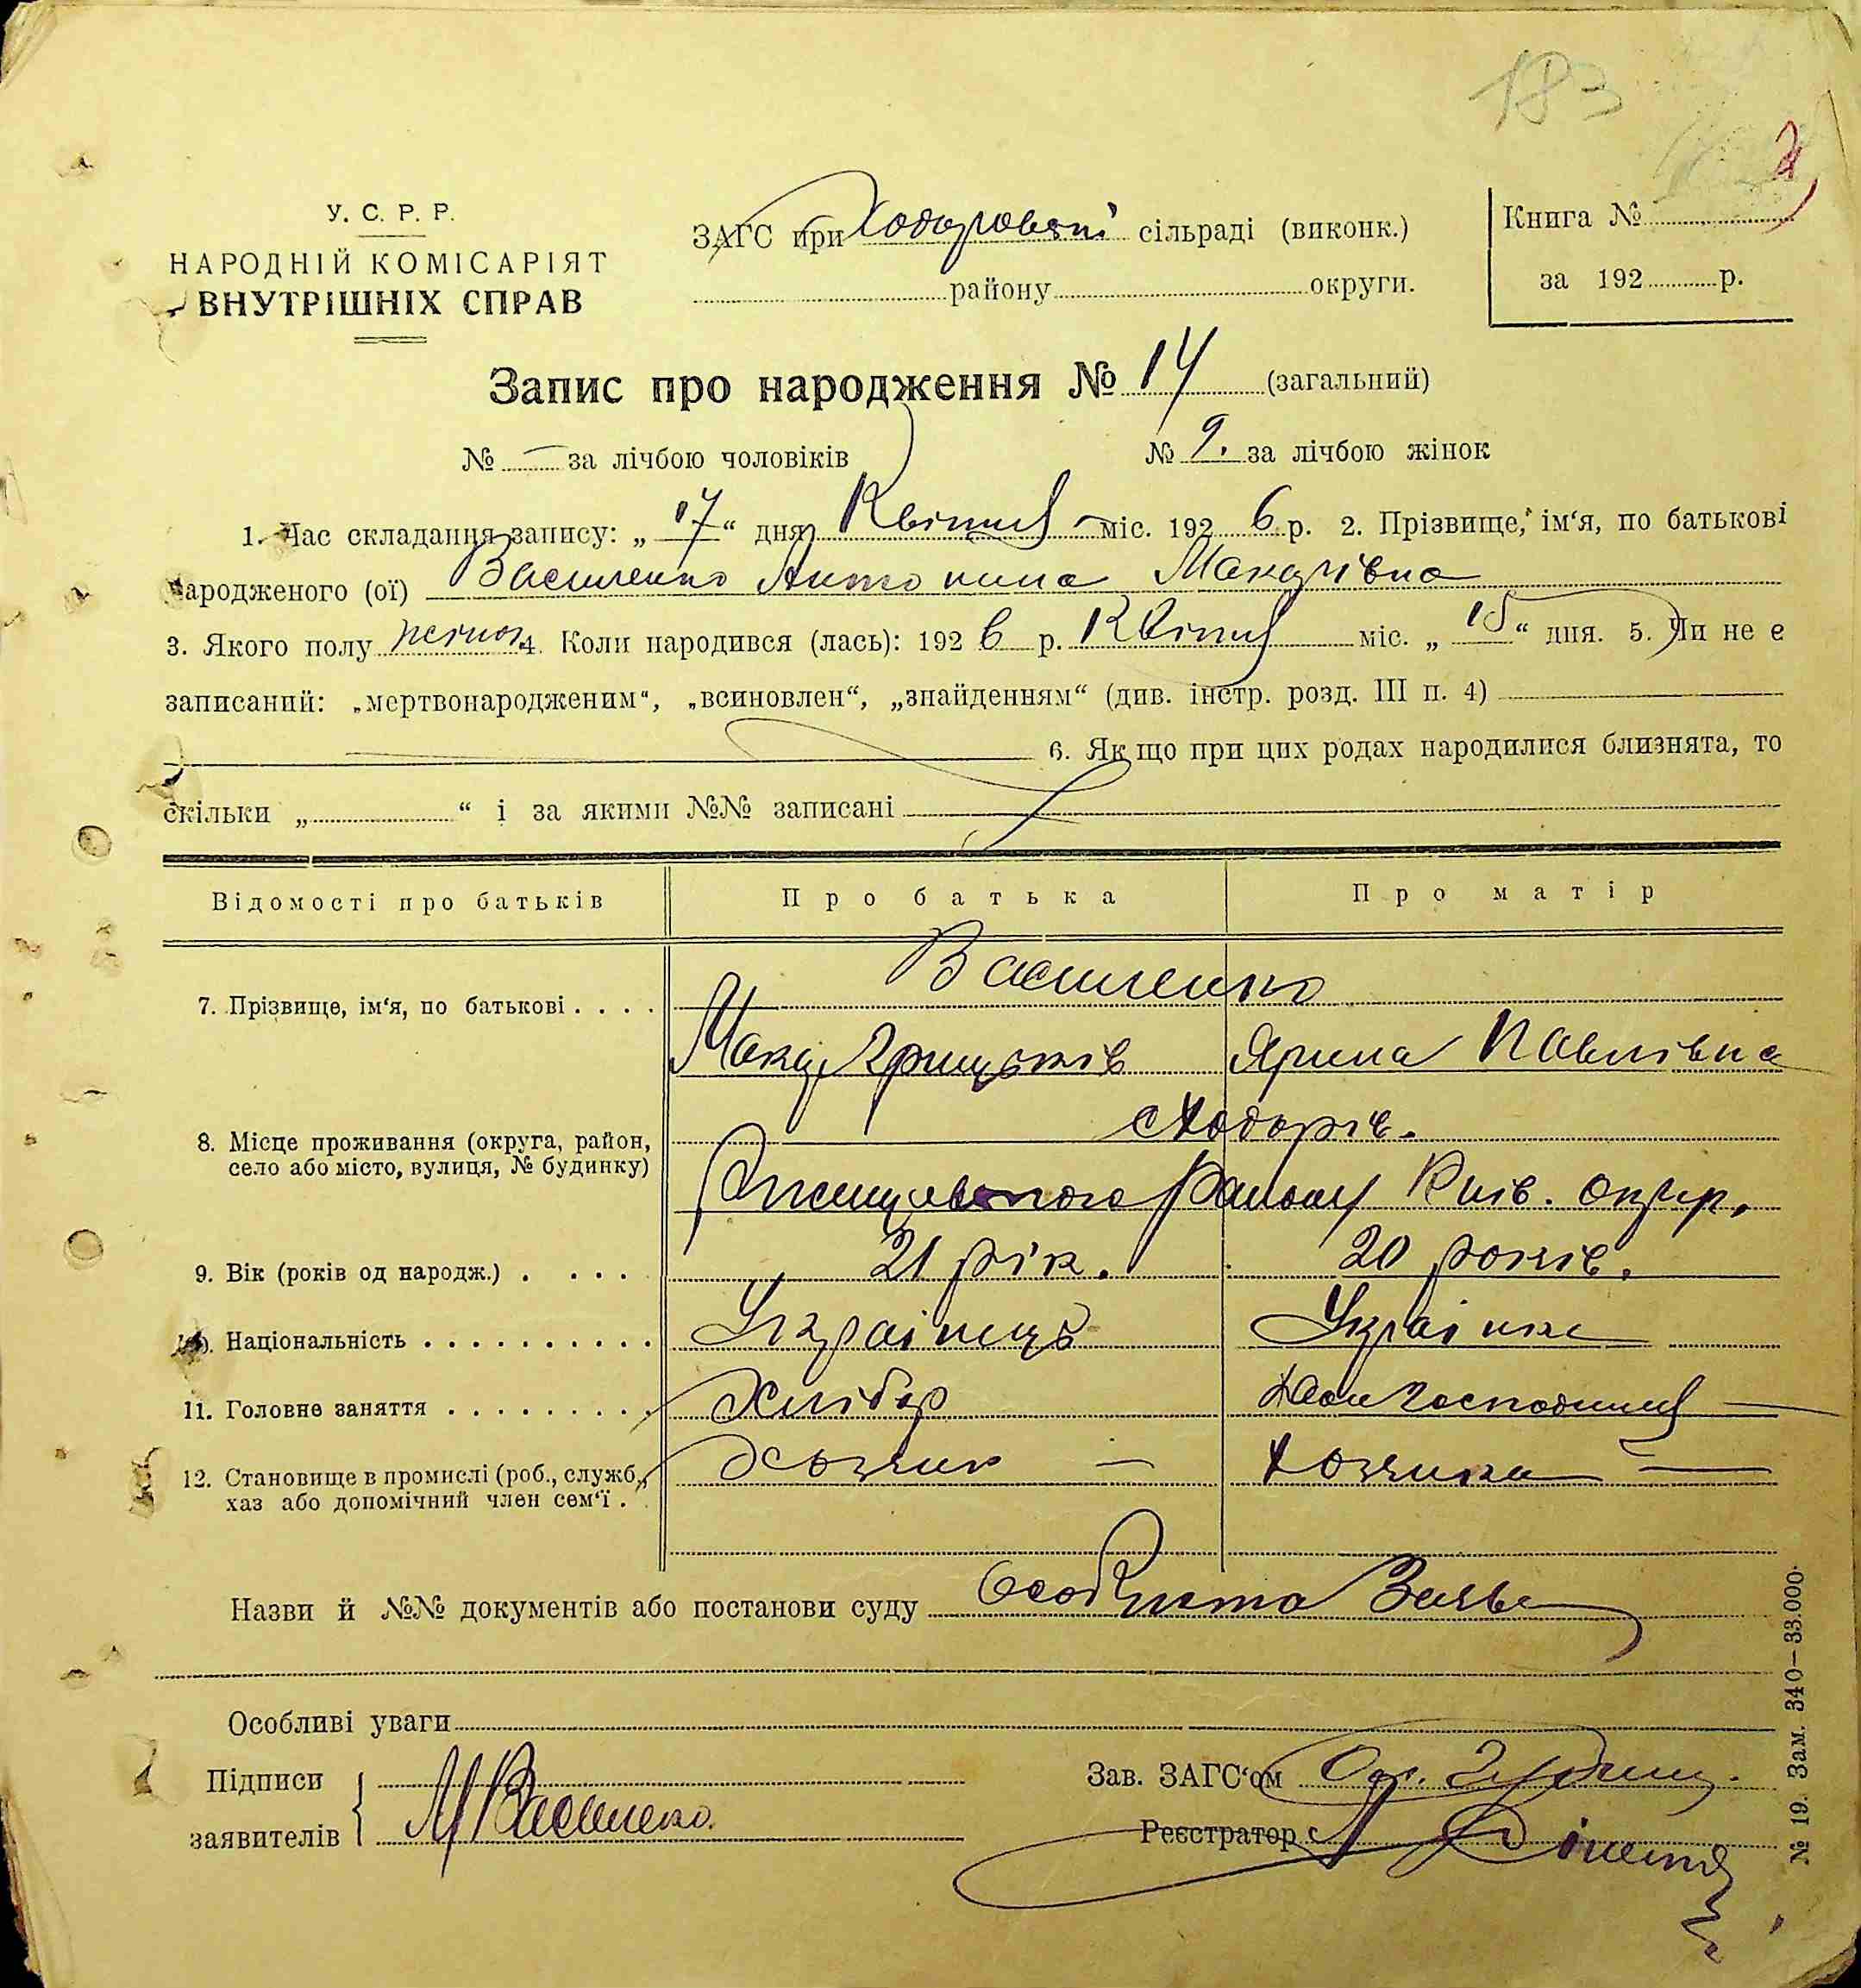 183
У. С. Р. Р.
НАРОДНІЙ КОМІСАРІЯТ
ВНУТРІШНІХ СПРАВ
ЗАГС при Ходоровскі сільраді (виконк.)
району округи.
Книга №
за 192 р.
Запис про народження № 14 (загальний)
№ — за лічбою чоловіків № 9. за лічбою жінок
1. Час складання запису: „17“ дня Квітня міс. 1926 р. 2. Прізвище, ім‘я, по батькові
народженого (ої) Василенко Антонина Макарівна
3. Якого полу жіноч 4. Коли народився (лась): 1926 р. Квітня міс. „15“ дня. 5. Чи не е
записаний: „мертвонародженим“, „всиновлен“, „знайденням“ (див. інстр. розд. III п. 4)
6. Як що при цих родах народилися близнята, то
скільки „ “ і за якими №№ записані
Відомості про батьків Про батька Про матір
Василенко
7. Прізвище, ім‘я, по батькові . . . .
Макар Грицьків Ярина Павлівна
с Ходорів.
8. Місце проживання (округа, район,
село або місто, вулиця, № будинку)
Ржищевского Району Київ. округ.
9. Вік (років од народж.) . . . . 21 рік. 20 років.
10. Національність . . . . . . . . . . Українець Українка
11. Головне заняття . . . . . . . . . Хлібор Дом господиня —
12. Становище в промислі (роб., служб., Хозяин — Хозяика —
хаз або допомічний член сем‘ї . .
Назви й №№ документів або постанови суду Особиста Заява
Особливі уваги
Підписи
заявителів М Василенко.
Зав. ЗАГС‘ом
Реєстратор
№ 19. Зам. 340—33.000.